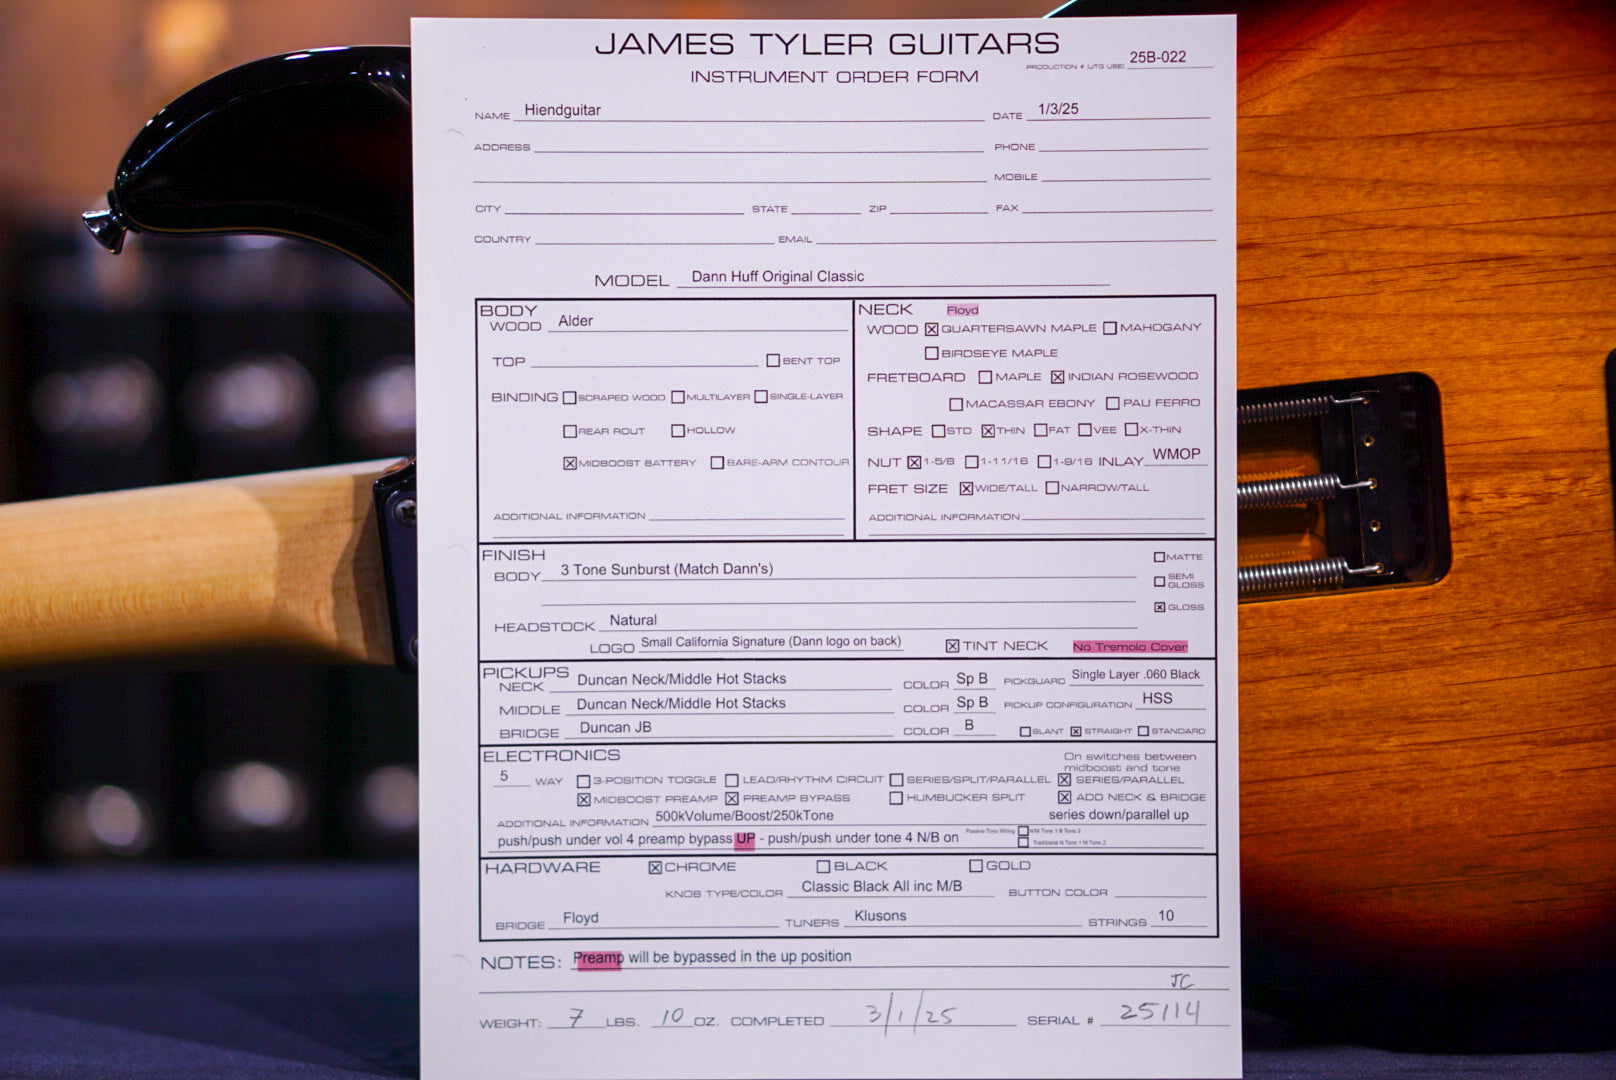 JAMES TYLER GUITARS
PRODUCTION # (JTG USE) 25B-022
INSTRUMENT ORDER FORM
NAME Hiendguitar DATE 1/3/25
ADDRESS PHONE
MOBILE
CITY STATE ZIP FAX
COUNTRY EMAIL
MODEL Dann Huff Original Classic
BODY
WOOD Alder
TOP ☐ BENT TOP
BINDING ☐ SCRAPED WOOD ☐ MULTILAYER ☐ SINGLE-LAYER
☐ REAR ROUT ☐ HOLLOW
☒ MIDBOOST BATTERY ☐ BARE-ARM CONTOUR
ADDITIONAL INFORMATION
NECK Floyd
WOOD ☒ QUARTERSAWN MAPLE ☐ MAHOGANY
☐ BIRDSEYE MAPLE
FRETBOARD ☐ MAPLE ☒ INDIAN ROSEWOOD
☐ MACASSAR EBONY ☐ PAU FERRO
SHAPE ☐ STD ☒ THIN ☐ FAT ☐ VEE ☐ X-THIN
NUT ☒ 1-5/8 ☐ 1-11/16 ☐ 1-9/16 INLAY WMOP
FRET SIZE ☒ WIDE/TALL ☐ NARROW/TALL
ADDITIONAL INFORMATION
FINISH ☐ MATTE
BODY 3 Tone Sunburst (Match Dann's)
☐ SEMI GLOSS
☒ GLOSS
HEADSTOCK Natural
LOGO Small California Signature (Dann logo on back) ☒ TINT NECK No Tremolo Cover
PICKUPS
NECK Duncan Neck/Middle Hot Stacks COLOR Sp B PICKGUARD Single Layer .060 Black
MIDDLE Duncan Neck/Middle Hot Stacks COLOR Sp B PICKUP CONFIGURATION HSS
BRIDGE Duncan JB COLOR B ☐ SLANT ☒ STRAIGHT ☐ STANDARD
ELECTRONICS On switches between
midboost and tone
5 WAY ☐ 3-POSITION TOGGLE ☐ LEAD/RHYTHM CIRCUIT ☐ SERIES/SPLIT/PARALLEL ☒ SERIES/PARALLEL
☒ MIDBOOST PREAMP ☒ PREAMP BYPASS ☐ HUMBUCKER SPLIT ☒ ADD NECK & BRIDGE
ADDITIONAL INFORMATION 500kVolume/Boost/250kTone series down/parallel up
push/push under vol 4 preamp bypass UP - push/push under tone 4 N/B on Passive Tone Wiring ☐ N/M Tone 1 B Tone 2
☐ Traditional N Tone 1 M Tone 2
HARDWARE ☒ CHROME ☐ BLACK ☐ GOLD
KNOB TYPE/COLOR Classic Black All inc M/B BUTTON COLOR
BRIDGE Floyd TUNERS Klusons STRINGS 10
NOTES: Preamp will be bypassed in the up position
JC
WEIGHT: 7 LBS. 10 OZ. COMPLETED 3/1/25 SERIAL # 25114